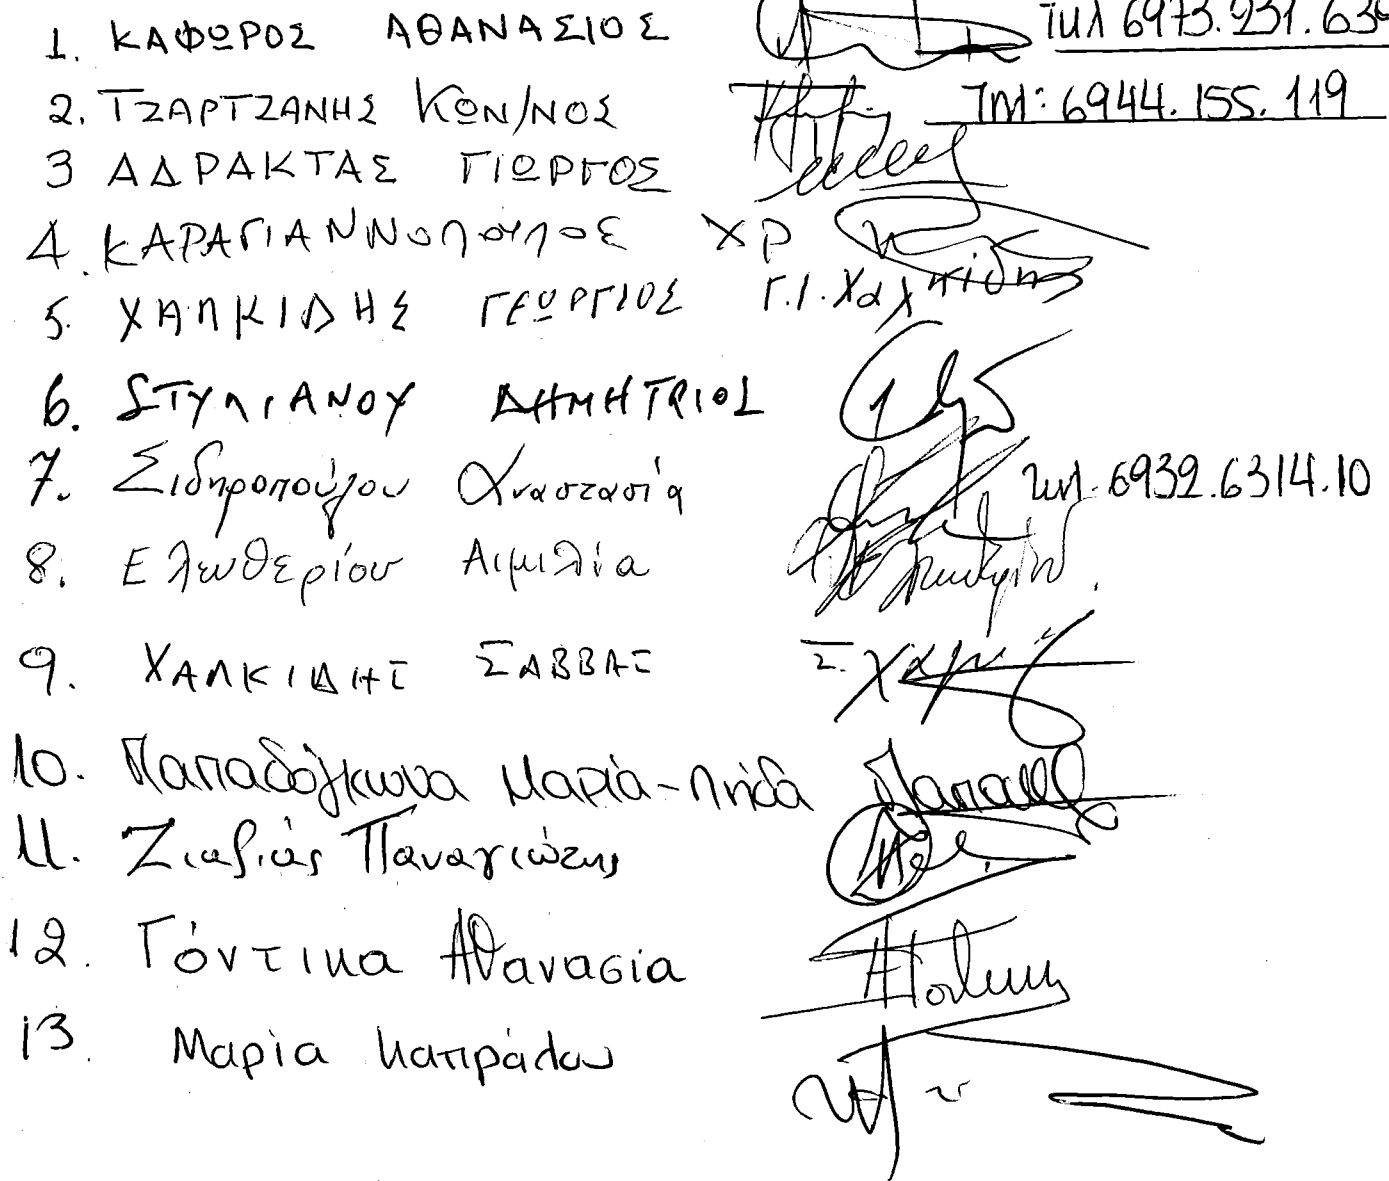 1. ΚΑΦΩΡΟΣ ΑΘΑΝΑΣΙΟΣ τηλ 6973.231.636
2. ΤΖΑΡΤΖΑΝΗΣ ΚΩΝ/ΝΟΣ Τηλ: 6944.155.119
3 ΑΔΡΑΚΤΑΣ ΓΙΩΡΓΟΣ
4. ΚΑΡΑΓΙΑΝΝΟΠΟΥΛΟΣ ΧΡ
5. ΧΑΛΚΙΔΗΣ ΓΕΩΡΓΙΟΣ Γ.Ι. Χαλκίδης
6. ΣΤΥΛΙΑΝΟΥ ΔΗΜΗΤΡΙΟΣ
7. Σιδηροπούλου Αναστασία τηλ. 6932.6314.10
8. Ελευθερίου Αιμιλία
9. ΧΑΛΚΙΔΗΣ ΣΑΒΒΑΣ Σ.
10. Παπαδόγκωνα Μαρία-Λήδα
11. Ζιαβιάς Παναγιώτης
12. Γόντικα Αθανασία
13. Μαρία Καπράλου